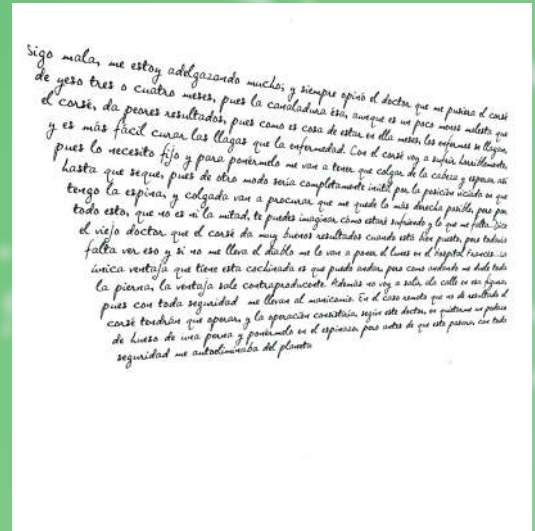 sigo mala, me estoy adelgazando mucho; y siempre opinó el doctor que me pusiera el corsé
de yeso tres o cuatro meses, pues la canaladura ésa, aunque es un poco menos molesta que
el corsé, da peores resultados, pues como es cosa de estar en ella meses, los enfermos se llagan,
y es más fácil curar las llagas que la enfermedad. Con el corsé voy a sufrir horriblemente,
pues lo necesito fijo y para ponérmelo me van a tener que colgar de la cabeza y esperar así
hasta que seque, pues de otro modo sería completamente inútil por la posición viciada en que
tengo la espina, y colgada van a procurar que me quede lo más derecha posible, pero por
todo esto, que no es ni la mitad, te puedes imaginar cómo estaré sufriendo y lo que me falta. Dice
el viejo doctor que el corsé da muy buenos resultados cuando está bien puesto, pero todavía
falta ver eso y si no me lleva el diablo me lo van a poner el lunes en el Hospital Francés...La
única ventaja que tiene esta cochinada es que puedo andar, pero como andando me duele toda
la pierna, la ventaja sale contraproducente. Además no voy a salir ala calle en esa figura,
pues con toda seguridad me llevan al manicomio. En el caso remoto que no dé resultado el
corsé tendrán que operar, y la operación consistiría, según este doctor, en quitarme un pedazo
de hueso de una pierna y ponérmelo en el espinazo, pero antes de que esto pasara, con toda
seguridad me autoeliminaba del planeta